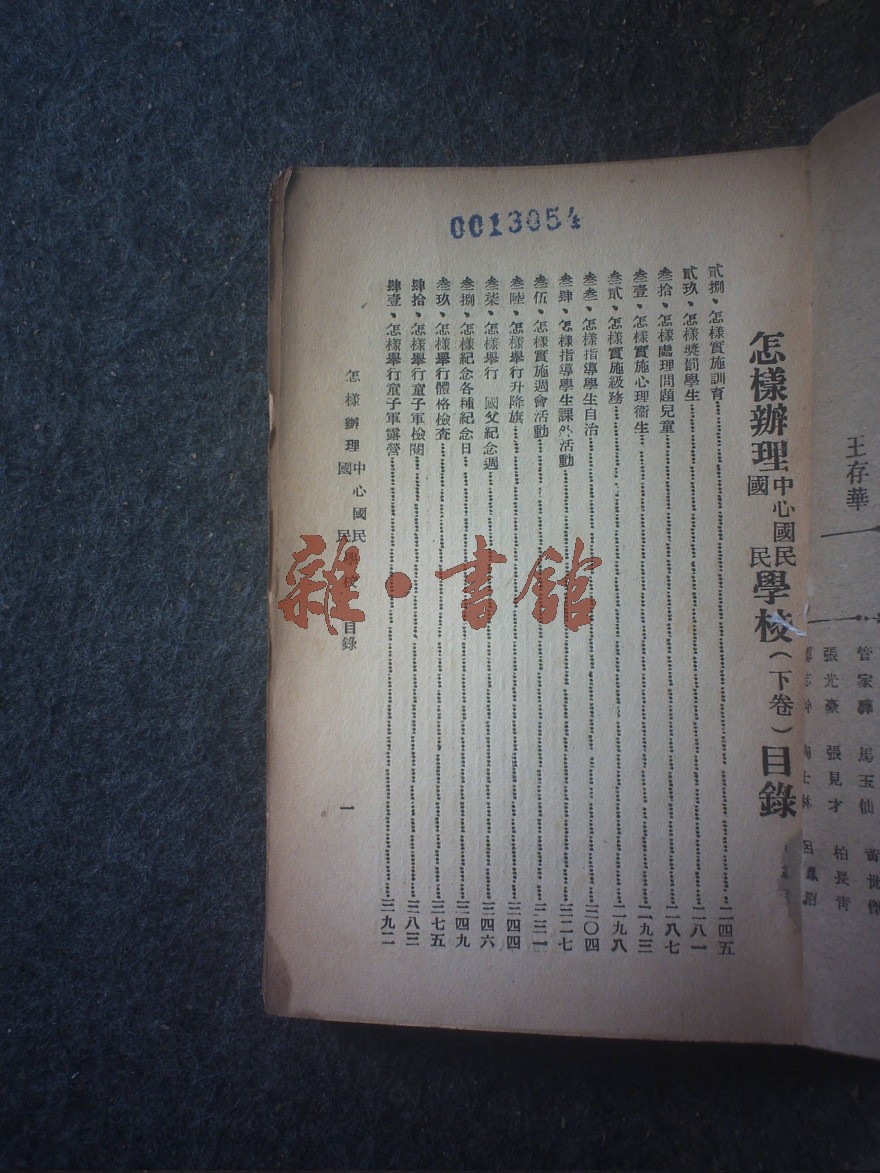 0013054
怎樣辦理中心國民國民學校(下卷)目錄
貳捌、怎樣實施訓育……二四五
貳玖、怎樣獎罰學生……二八一
叁拾、怎樣處理問題兒童……二八七
叁壹、怎樣實施心理衞生……二九三
叁貳、怎樣實施級務……二九八
叁叁、怎樣指導學生自治……三〇四
叁肆、怎樣指導學生課外活動……三二七
叁伍、怎樣實施週會活動……三三一
叁陸、怎樣舉行升降旗……三四四
叁柒、怎樣舉行 國父紀念週……三四六
叁捌、怎樣紀念各種紀念日……三四九
叁玖、怎樣舉行體格檢查……三七五
肆拾、怎樣舉行童子軍檢閱……三八三
肆壹、怎樣舉行童子軍露營……三九二
怎樣辦理中心國民國民學校 目錄
一
王存華
管家驊 馬玉仙
張光豪 張見才 柏長青
雜·書館